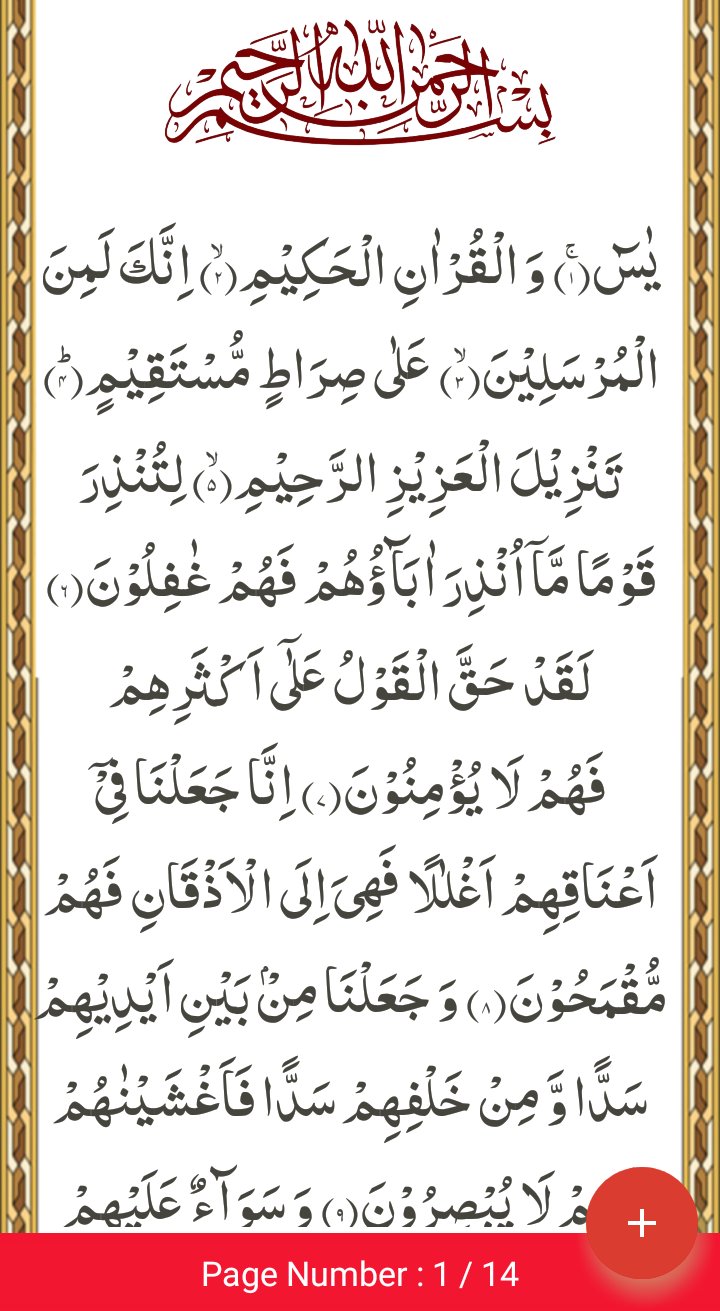 بسم الله الرحمن الرحيم
يٰسٓ(۱)ۚ وَ الْقُرْاٰنِ الْحَكِيْمِ(۲)ۙ اِنَّكَ لَمِنَ
الْمُرْسَلِيْنَ(۳)ۙ عَلٰى صِرَاطٍ مُّسْتَقِيْمٍ(۴)ؕ
تَنْزِيْلَ الْعَزِيْزِ الرَّحِيْمِ(۵)ۙ لِتُنْذِرَ
قَوْمًا مَّاۤ اُنْذِرَ اٰبَآؤُهُمْ فَهُمْ غٰفِلُوْنَ(۶)
لَقَدْ حَقَّ الْقَوْلُ عَلٰۤى اَكْثَرِهِمْ
فَهُمْ لَا يُؤْمِنُوْنَ(۷) اِنَّا جَعَلْنَا فِيْۤ
اَعْنَاقِهِمْ اَغْلٰلًا فَهِیَ اِلَى الْاَذْقَانِ فَهُمْ
مُّقْمَحُوْنَ(۸) وَ جَعَلْنَا مِنْۢ بَيْنِ اَيْدِيْهِمْ
سَدًّا وَّ مِنْ خَلْفِهِمْ سَدًّا فَاَغْشَيْنٰهُمْ
لَا يُبْصِرُوْنَ(۹) وَ سَوَآءٌ عَلَيْهِمْ
+
Page Number : 1 / 14